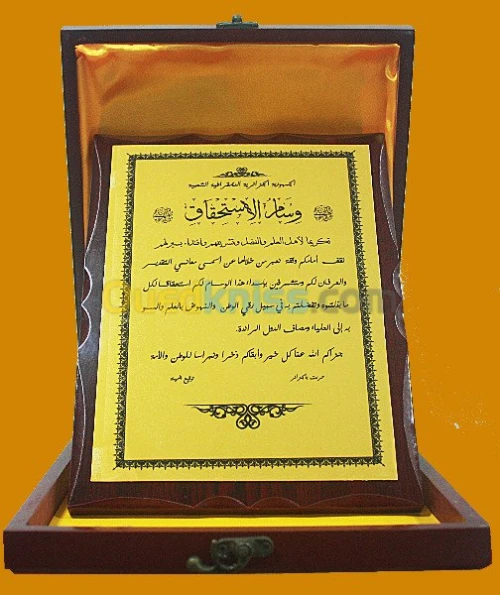 الجمهورية الجزائرية الديمقراطية الشعبية
وسام الإستحقاق
تكريما لأهل العلم والفضل
نقف أمامكم وقفة نعبر من خلالها عن أسمى معاني التقدير
والعرفان لكم ونتشرف بإسداء هذا الوسام لكم استحقاقا لكل
ما بذلتموه وتفضلتم به في سبيل رقي الوطن والنهوض بالعلم والسمو
به إلى العلياء ومصاف الدول الرائدة.
جزاكم الله عنا كل خير وأبقاكم ذخرا ونبراسا للوطن والأمة
Ouedkniss.com